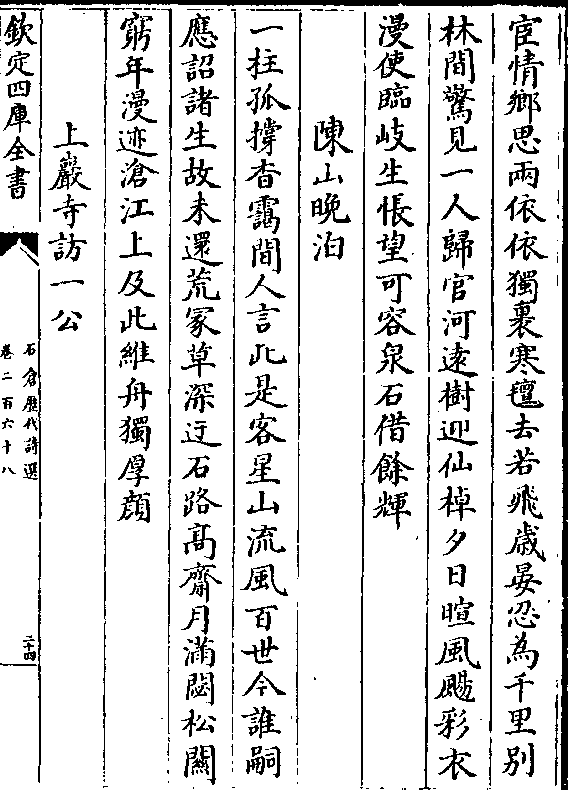 宦情鄉思兩依依獨裹寒氊去若飛歳晏忍為千里别
林間驚見一人歸官河逺樹迎仙棹夕日暄風颺彩衣
漫使臨岐生悵望可容泉石借餘輝
陳山晚泊
一柱孤撐杳靄間人言此是客星山流風百世今誰嗣
應詔諸生故未還荒冢草深迂石路髙齋月滿閟松關
窮年漫迹滄江上及此維舟獨厚顔
上巖寺訪一公
欽定四庫全書
石倉歴代詩選
卷二百六十八
二十四